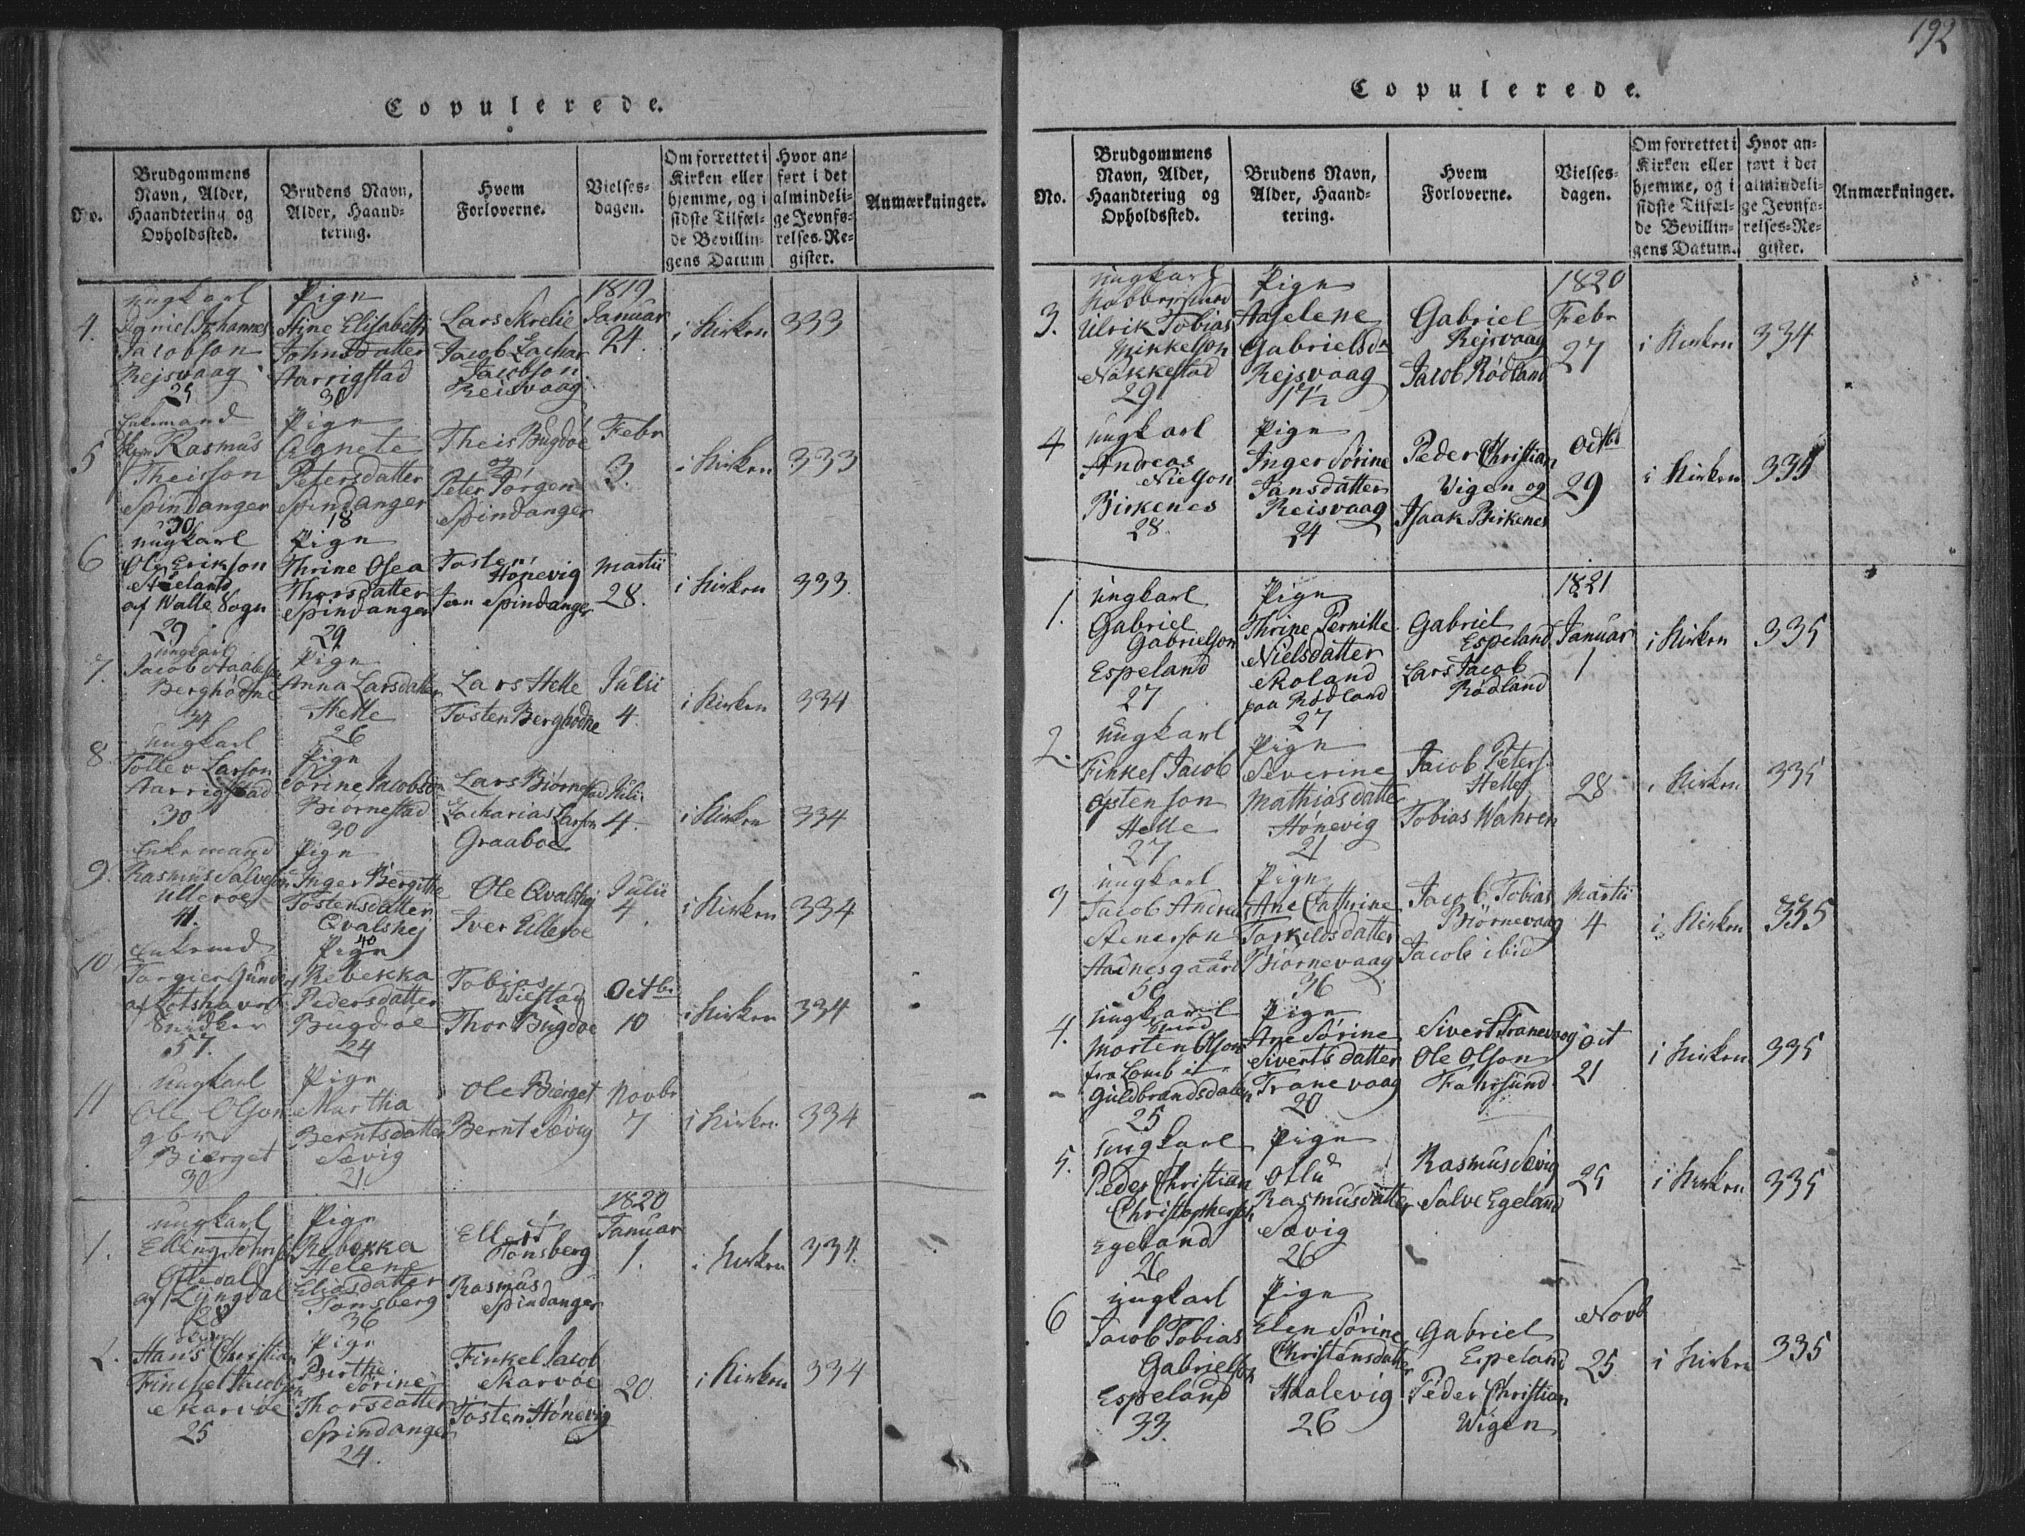 192
Copulerede.
No.
Brudgommens Navn, Alder, Haandtering og Opholdssted.
Brudens Navn, Alder, Haandtering.
Hvem Forloverne.
Vielses-dagen.
Om forrettet i Kirken eller hjemme, og i sidste Tilfælde Bevillingens Datum
Hvor anført i det almindelige Jevnførelses-Register.
Anmærkninger.
1819
4.
ungkarl
Daniel Johannes
Jacobson
Rejsvaag
25
Pige
Stine Elisabeth
Johnsdatter
Aarrigstad
30
Lars Skrelie
Jacob Zachar
Jacobson
Reisvaag
Januar
24.
i Kirken
333
5
Enkemand
Rasmus
Theisson
Spindanger
30
Pige
Agnete
Petersdatter
Spindanger
18
Theis Bugdøe
og
Peter Jørgen
Spindanger
Febr
3.
i Kirken
333
6
ungkarl
Ole Erikson
af Walle Sogn
29
Pige
Thrine Osea
Thorsdatter
Spindanger
29
Tosten
Hønevig
Jan Spindanger
Martii
28.
i Kirken
333.
7.
ungkarl
Jacob
Berghødne
34
Pige
Anna Larsdatter
Helle
26
Lars Helle
Tosten Berghødne
Julii
4.
i Kirken
334
8.
ungkarl
Tollev Larson
Aarrigstad
30
Pige
Sørine Jacobsdr
Biørnestad
30
Lars Biørnestad
Zacharias Larson
Graaboe
Juli
4.
i Kirken
334
9.
Enkemand
Rasmus Salveson
Ulleroe
41.
Pige
Inger Bergithe
Tostensdatter
Qvalshej
40
Ole Qvalshej
Iver Ulleroe
Julii
4.
i Kirken
334
10
Enkemd
Torgier
Snidker
57.
Pige
Rebekka
Pedersdatter
Bugdøe
24
Tobias
Wiestad
Thor Bugdøe
Octbr
10
i Kirken
334
11
ungkarl
Ole Olson
gbr
Bierget
30
Pige
Martha
Berntsdatter
Sævig
21.
Ole Bierget
Bernt Sævig
Novbr
7
i Kirken
334
1820
1.
ungkarl
Elling
Oftedal
af Lyngdal
28
Pige
Rebekka
Helene
Eliasdatter
Tonsberg
36
Ellert
Tonsberg
Rasmus
Spindanger
Januar
1.
i Kirken
334.
2.
Hans Christian
Finckel Jacobson
Skarvøe
25
Pige
Berthe
Sørine
Thorsdatter
Spindanger
24.
Finkel Jacob
Skarvøe
Tosten Hønevig
20.
i Kirken
334
Copulerede.
No.
Brudgommens Navn, Alder, Haandtering og Opholdssted.
Brudens Navn, Alder, Haandtering.
Hvem Forloverne.
Vielses-dagen.
Om forrettet i Kirken eller hjemme, og i sidste Tilfælde Bevillingens Datum.
Hvor anført i det almindelige Jevnførelses-Register.
Anmærkninger.
1820
3.
ungkarl
Ulrik Tobias
Mikkelson
Nakkestad
29
Pige
Aaselene
Gabrielsdr
Rejsvaag
17½
Gabriel
Rejsvaag
Jacob Rødland
Febr
27
i Kirken
334
4
ungkarl
Andreas
Nielson
Birkenes
28.
Pige
Inger Sørine
Jansdatter
Reisvaag
24
Peder Christian
Vigen og
Isaak Birkenes
Octbr
29
i Kirken
335
1821
1.
ungkarl
Gabriel
Gabrielson
Espeland
27
Pige
Thrine Pernille
Nielsdatter
Skoland
paa Rødland
27
Gabriel
Espeland
Lars Jacob
Rødland
Januar
1
i Kirken
335
2.
ungkarl
Finkel Jacob
Ostenson
Helle
27
Pige
Severine
Mathiasdatter
Hønevig
21
Jacob Peters
Helle
Tobias Wahren
28
i Kirken
335
3
ungkarl
Jacob Andreas
Stenerson
Aadnesgaard
50
Pige
Ane Cathrine
Torkildsdatter
Biørnevaag
36
Jacob Tobias
Biørnevaag
Jacob ibid
Martii
4
i Kirken
335
4.
ungkarl
Smed
Morten Olson
fra Lomb i
Guldbrandsdalen
25
Pige
Ane Sørine
Siverts datter
Tranevaag
20
Sivert Tranevaag
Ole Olson
Fahrsund
Oct
21
i Kirken
335
5.
ungkarl
Peder Christian
Christopherson
Egeland
26
Pige
Rasmusdatter
Sævig
26
Rasmus Sævig
Salve Egeland
25
i Kirken
335
6
ungkarl
Jacob Tobias
Gabrielson
Espeland
33.
Pige
Elen Sørine
Christensdatter
Haalevig
26
Gabriel
Espeland
Peder Christian
Wigen
Novb
25
i Kirken
335